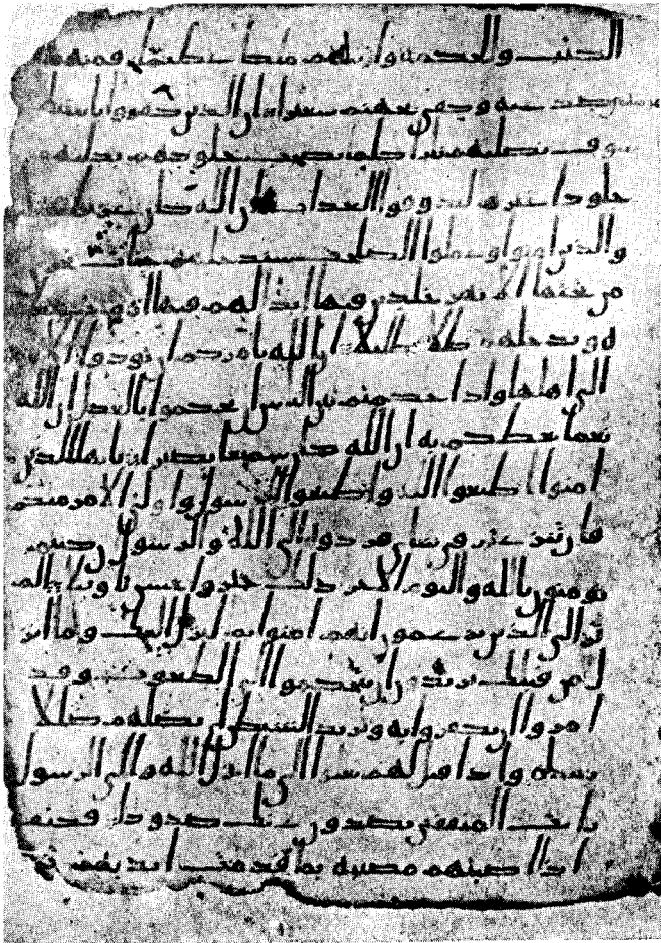 الكتب والحكمة واتينهم ملكا عظيما فمنهم
صد عنه وكفى بجهنم سعيرا ان الذين كفروا بايتنا
سوف نصليهم نارا كلما نضجت جلودهم بدلنهم
جلودا غيرها ليذوقوا العذاب ان الله كان عزيزا حكيما
والذين امنوا وعملوا الصلحت سندخلهم جنت تجرى
من تحتها الانهر خلدين فيها ابدا لهم فيها ازوج مطهر
ة وندخلهم ظلا ظليلا ان الله يامركم ان تودوا الا
الى اهلها واذا حكمتم بين الناس ان تحكموا بالعدل ان الله
نعما يعظكم به ان الله كان سميعا بصيرا يايها الذين
امنوا اطيعوا الله واطيعوا الرسول واولى الامر منكم
فان تنزعتم فى شاى فردوه الى الله والرسول ان كنتم
تومنون بالله واليوم الاخر ذلك خير واحسن تاويلا الم
تر الى الذين يزعمون انهم امنوا بما انزل اليك وما انز
ل من قبلك يريدون ان يتحكموا الى الطغوت وقد
امروا ان يكفروا به ويريد الشيطن ان يضلهم ضللا
بعيدا واذا قيل لهم تعلوا الى ما انزل الله والى الرسول
رايت المنفقين يصدون عنك صدودا فكيف
اذا اصبتهم مصيبة بما قدمت ايديهم ثم